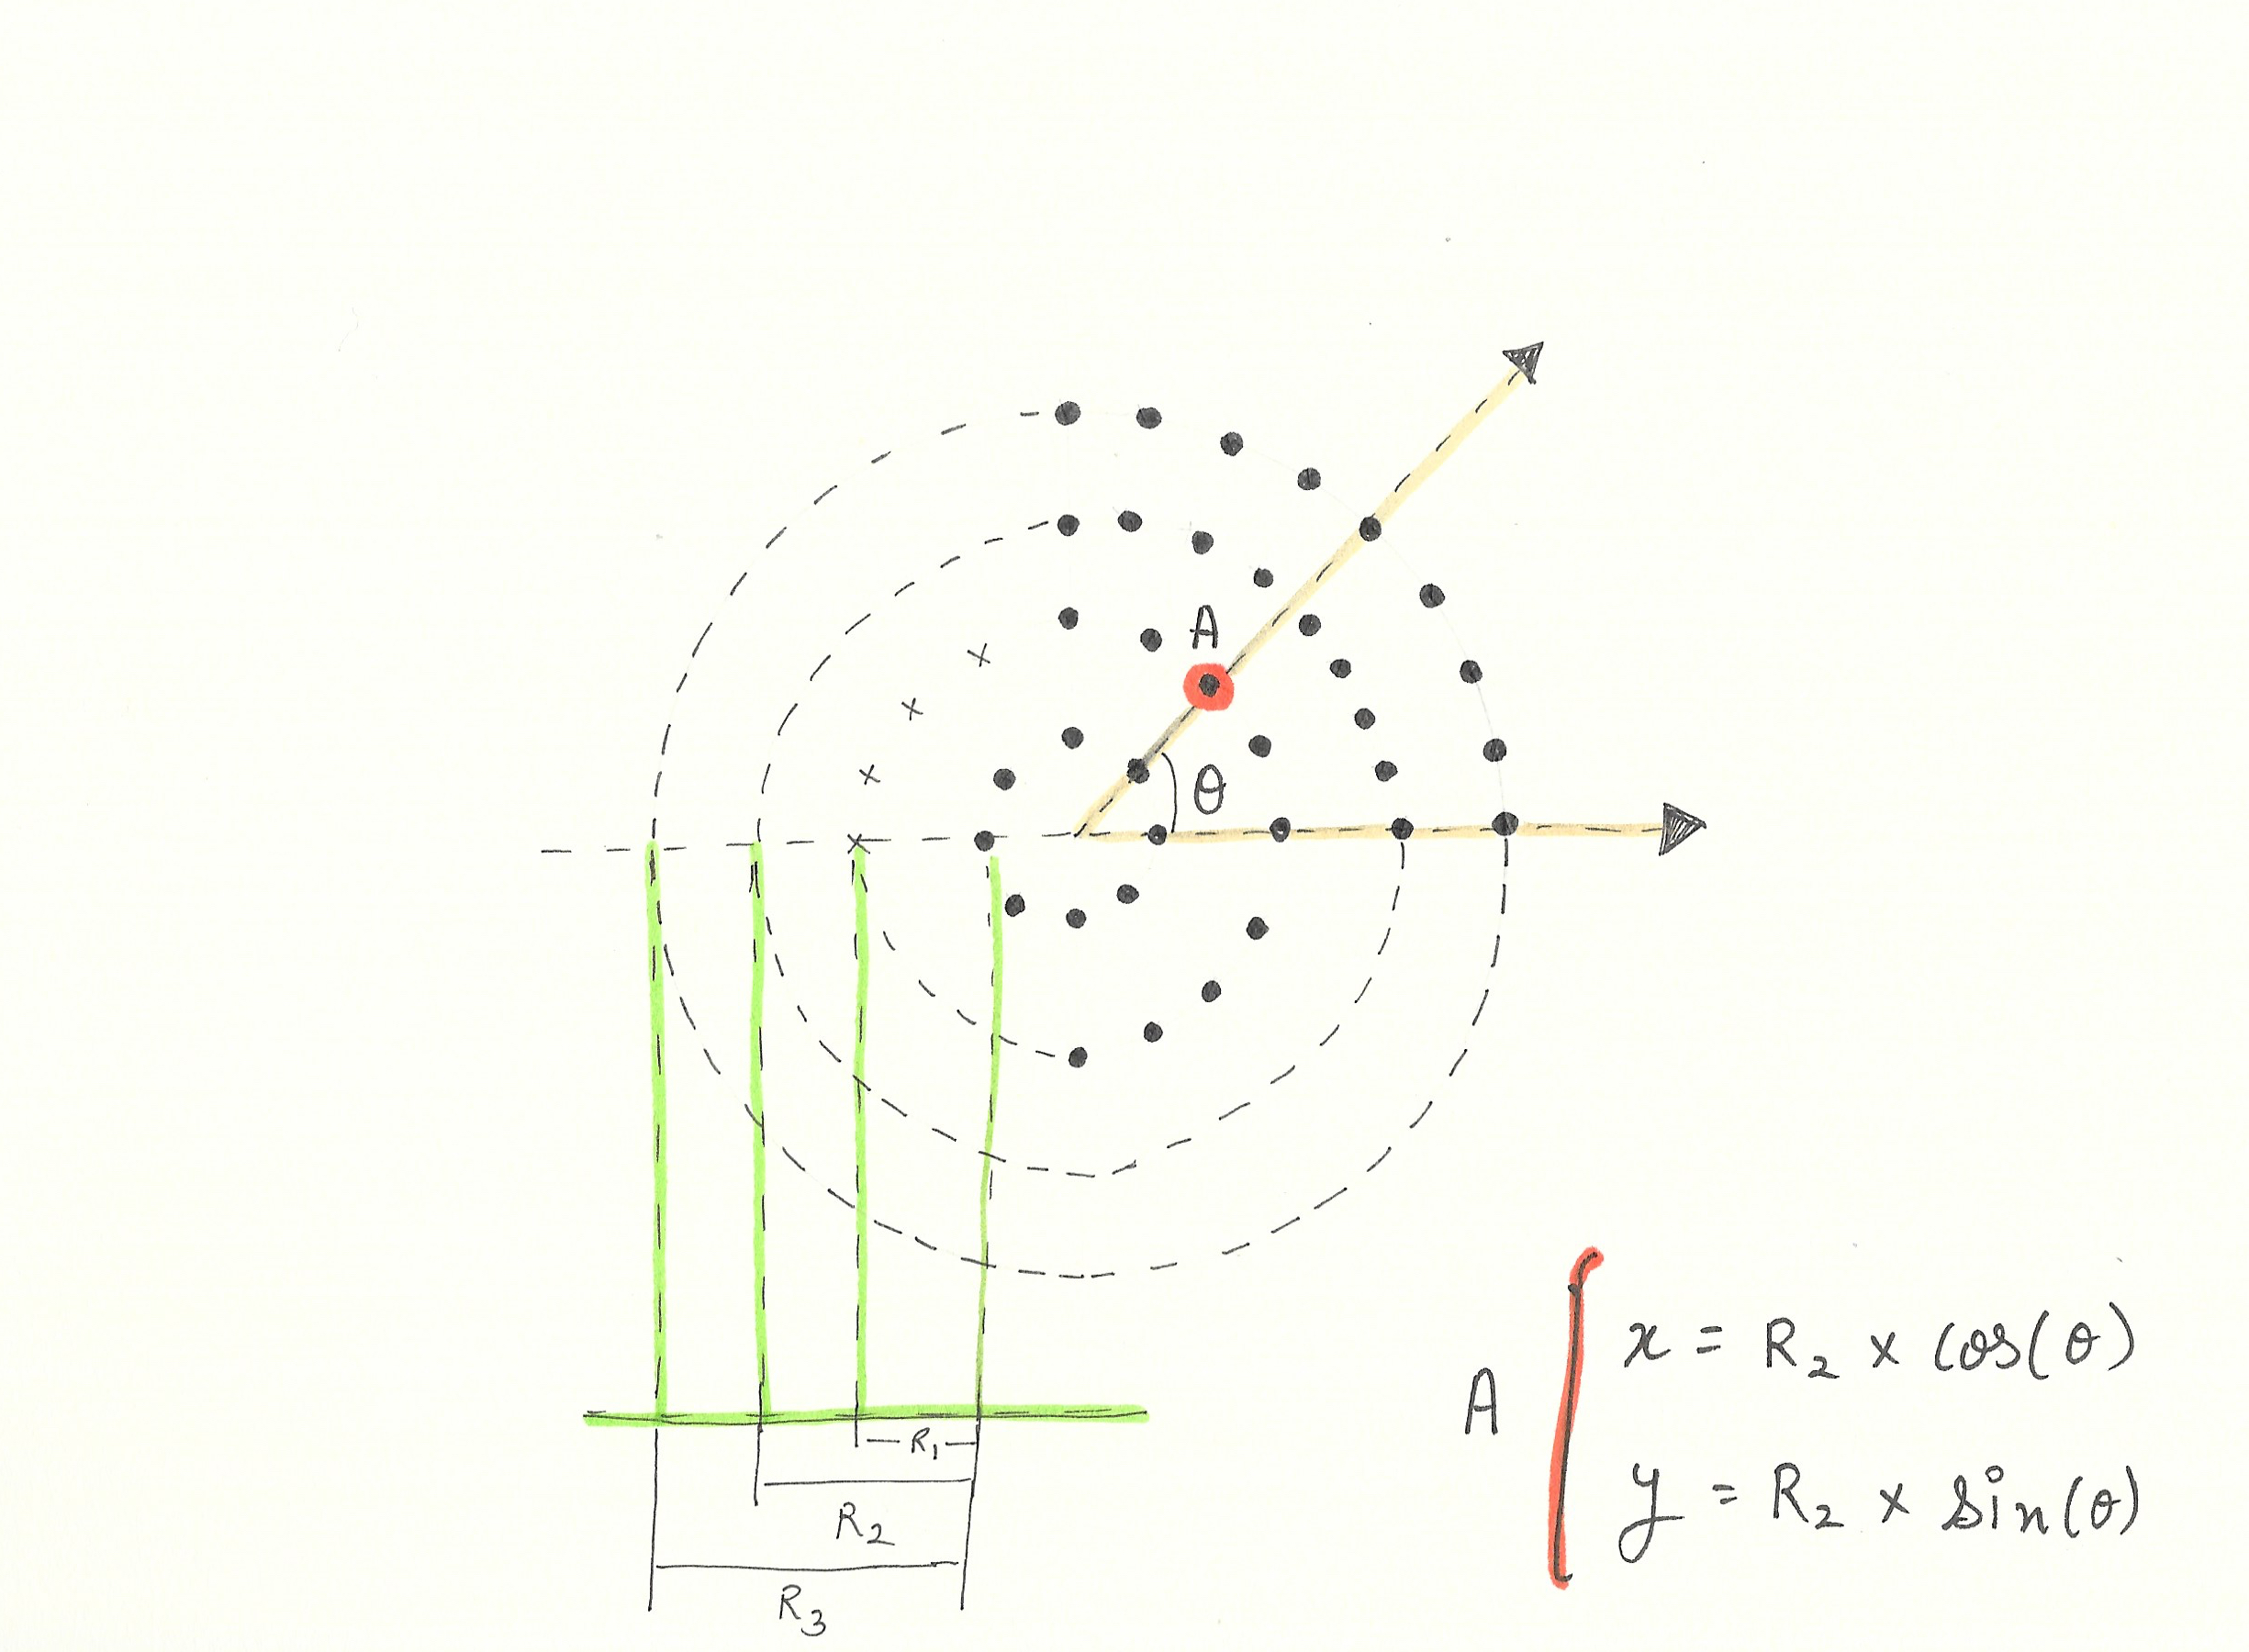 A
θ
R₁
R₂
R₃
A
x = R₂ x cos(θ)
y = R₂ x sin(θ)